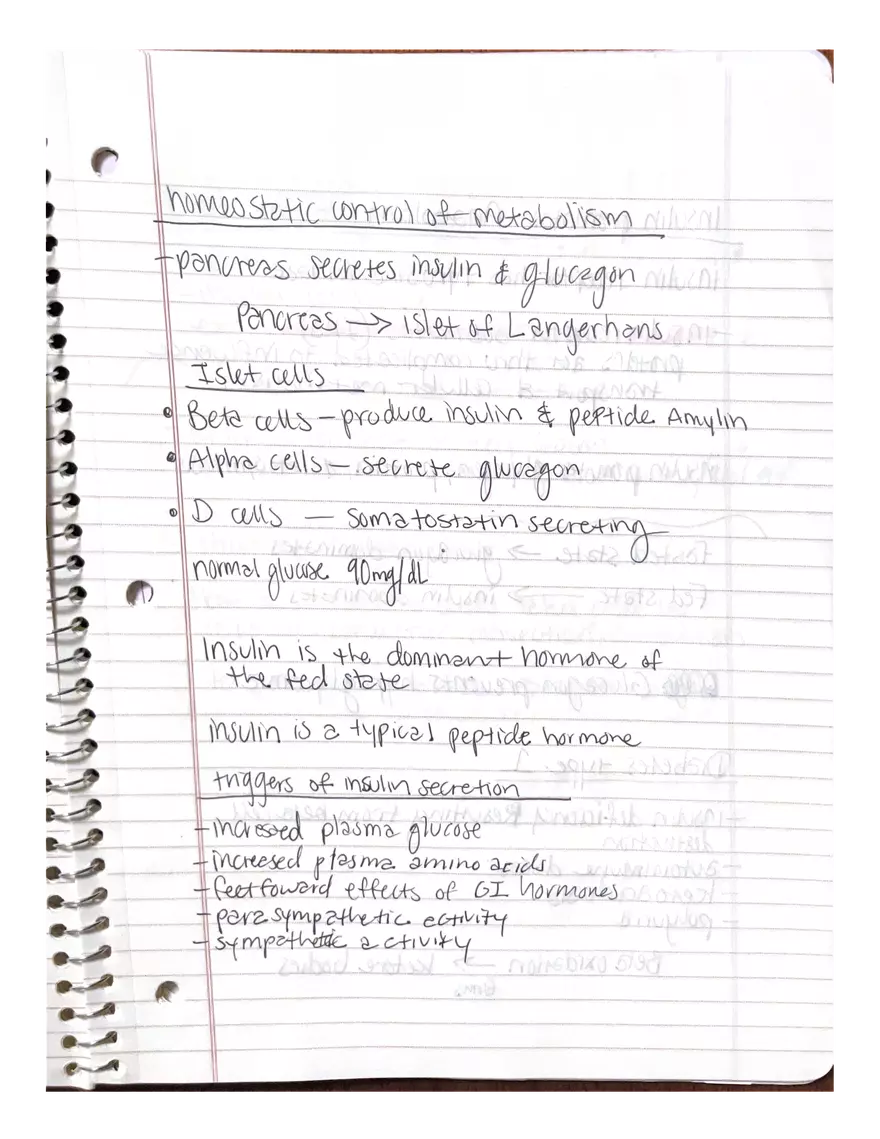 homeostatic control of metabolism
-pancreas secretes insulin & glucagon
Pancreas → islet of Langerhans
Islet cells
• Beta cells - produce insulin & peptide Amylin
• Alpha cells - secrete glucagon
• D cells - somatostatin secreting
normal glucose 90mg/dL
Insulin is the dominant hormone of
the fed state
insulin is a typical peptide hormone
triggers of insulin secretion
- increased plasma glucose
- increesed plasma amino acids
- feetfoward effects of GI hormones
- parasympathetic activity
- sympathetic activity